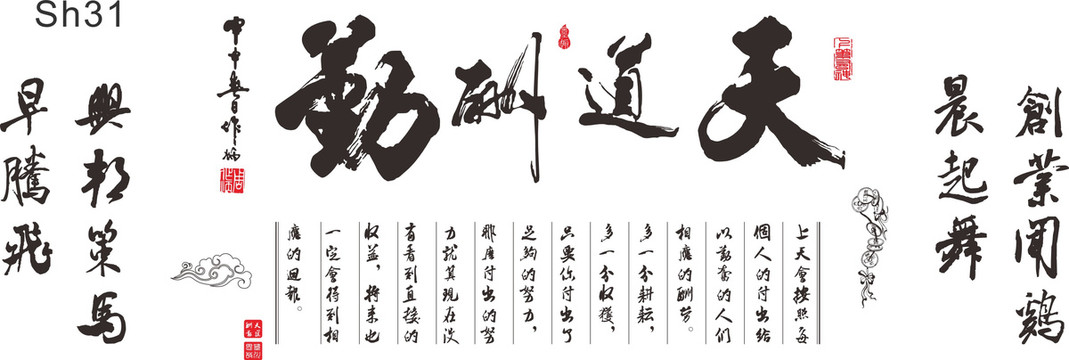 Sh31
創業聞鷄
晨起舞
天道酬勤
上天會按照每
個人的付出給
以勤奮的人們
相應的酬勞。
多一分耕耘，
多一分收獲，
只要你付出了
足夠的努力，
那應付出的努
力就算現在沒
有看到直接的
收益，將來也
一定會得到相
應的回報。
興邦策馬
早騰飛